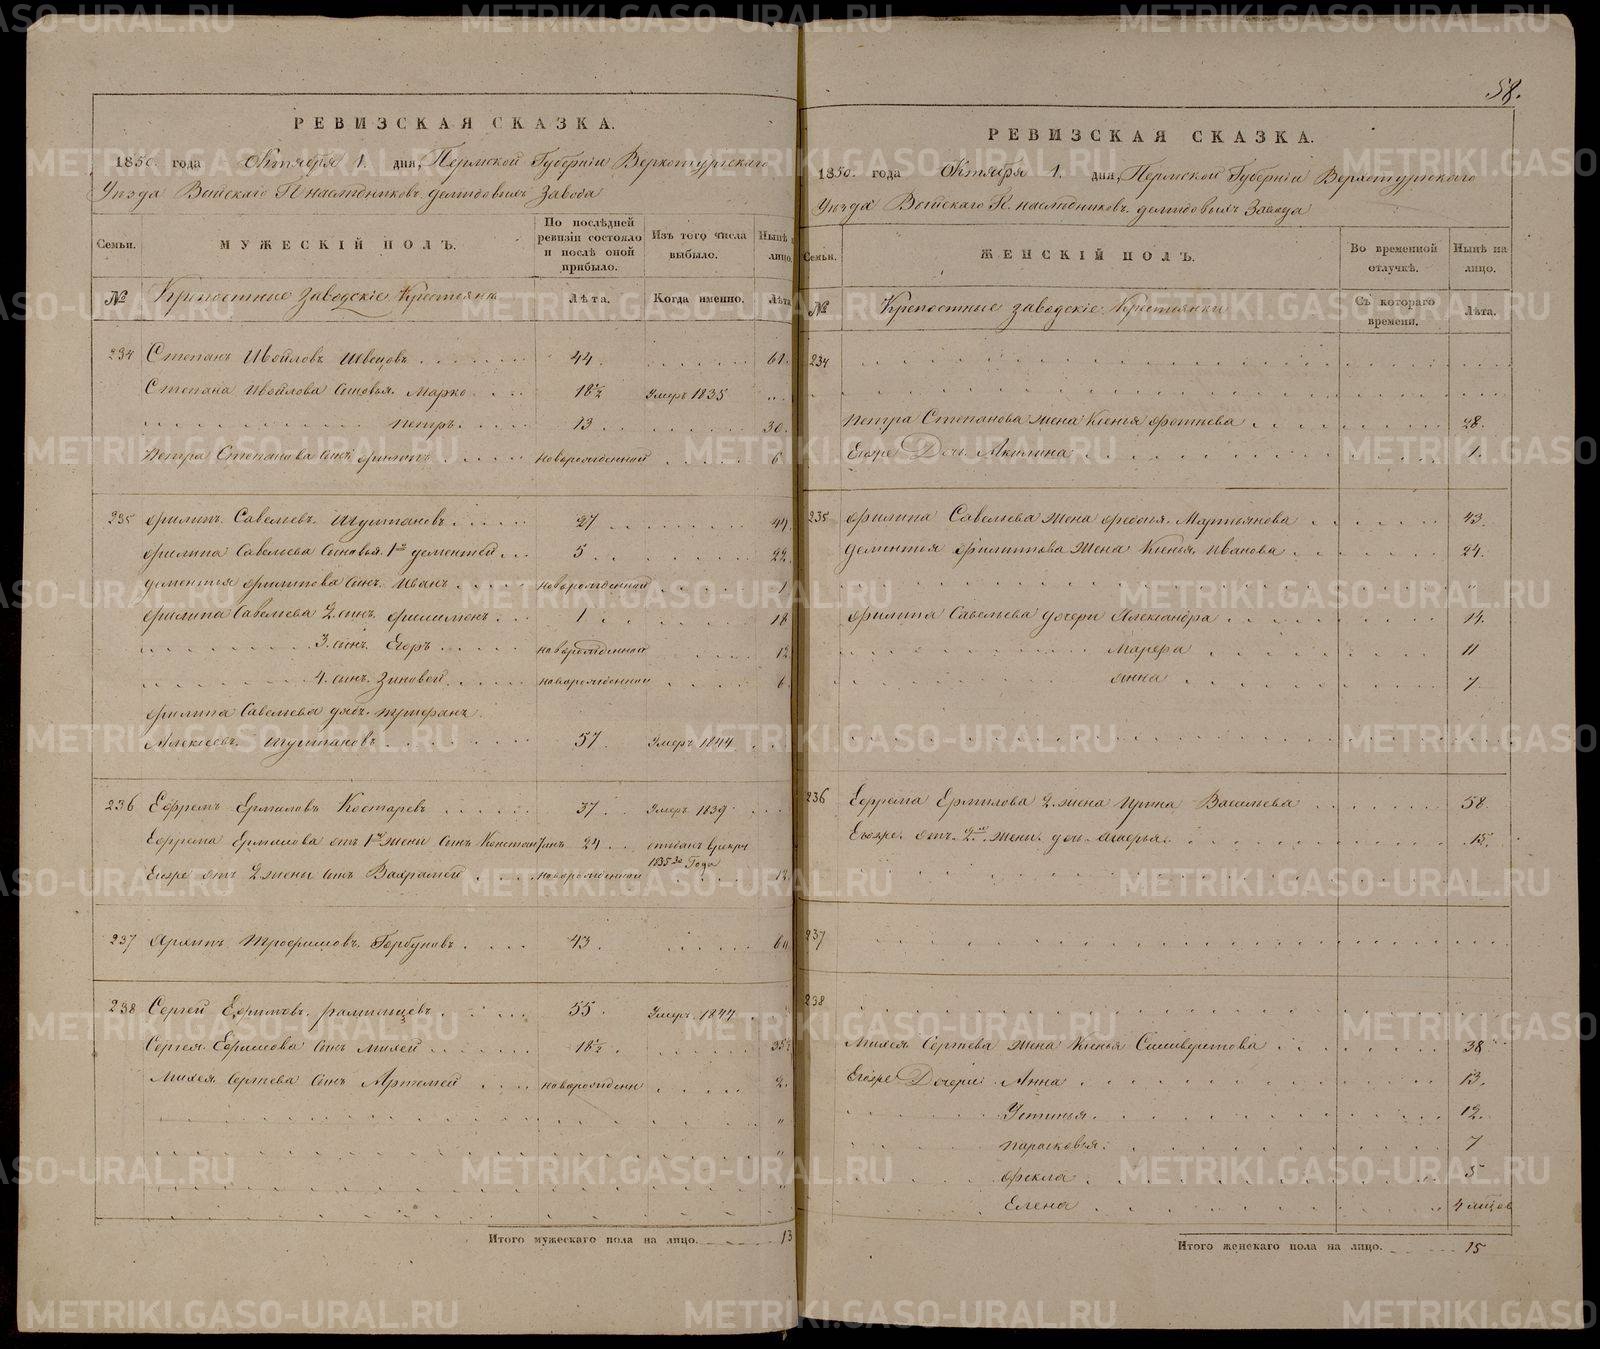 58.
РЕВИЗСКАЯ СКАЗКА.
1850. года Октября 1. дня, Пермской Губерніи Верхотурскаго
Уѣзда Выйскаго Г. наслѣдниковъ демидовыхъ Завода
Семьи.
МУЖЕСКІЙ ПОЛЪ.
По послѣдней ревизіи состояло и послѣ оной прибыло.
Изъ того числа выбыло.
Нынѣ на лицо.
№
Крѣпостные заводскіе Крестьяна
Лѣта.
Когда именно.
Лѣта
234 Степанъ Ивойловъ Швецовъ 44 61.
Степана Ивойлова Сыновья. Марко 18½ Умеръ 1835
петръ. 13 30.
Петра Степанова Сынъ филипъ новорожденной 6
235 филипъ Савельевъ Шуштановъ 27 44
филипа Савельева Сыновья. 1й дементей 5 22
дементья филипова Сынъ Иванъ новорожденной 1
филипа Савельева 2. сынъ филимонъ 1 18
3. сынъ Егоръ новорожденной 12
4. сынъ Зиновей новорожденной 6
филипа Савельева дядя трифанъ
Алексѣевъ Шуштановъ 57 Умеръ 1844
236 Ефремъ Ермиловъ Костаревъ 37 Умеръ 1839
Ефрема Ермилова отъ 1й жены Сынъ Константинъ 24 отданъ в рекруты
1835го Года
Егоже отъ 2 жены сынъ Вахрамей новорожденной 12
237 Архипъ трофимовъ Горбуновъ 43 60
238 Сергей Ефимовъ 55 Умеръ 1847
Сергея Ефимова Сынъ Михей 18½ 35½
Михея Сергеева Сынъ Артемей новорожденн 2
Итого мужескаго пола на лицо. 13
РЕВИЗСКАЯ СКАЗКА.
1850. года Октября 1. дня, Пермской Губерніи Верхотурскаго
Уѣзда Выйскаго Г. наслѣдниковъ демидовыхъ Завода
Семьи.
ЖЕНСКІЙ ПОЛЪ.
Во временной отлучкѣ.
Нынѣ на лицо.
№
Крѣпостные заводскіе Крестьянки
Съ котораго времени.
Лѣта.
234
петра Степанова жена Ксенья фотиева 28.
Егоже Дочь Акилина 1.
235 филипа Савельева жена федосья Мартьянова 43.
дементья филиппова Жена Ксенья иванова 24.
филипа Савельева дочери Александра 14.
Марфа 11
анна 7
236 Ефрема Ермилова 2. жена Ирина Васильева 58.
Егоже отъ 2й жены дочь дарья 15.
237
238
Михея Сергеева жена Ксенья Силиверстова 38
Егоже Дочери Анна 13.
Устинья. 12.
парасковья. 7
фекла 5
Елена 4 мѣсяцов
Итого женскаго пола на лицо. 15
METRIKI.GASO-URAL.RU